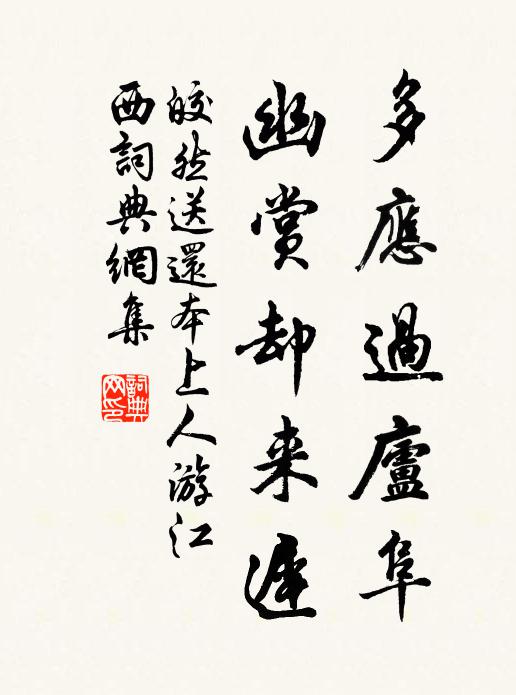 多應過廬阜
幽賞却来遲
皎然送還本上人游江
西詞典網集
詞典网印